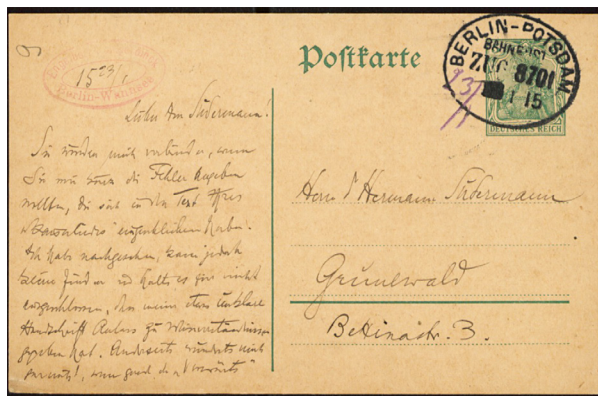 Postkarte
BERLIN-POTSDAM
BAHNPOST
ZUG 8701
1 15
DEUTSCHES REICH
15 23/1
Berlin-Wannsee
Lieber Herr Sudermann!
Sie würden mich verbinden, wenn
Sie mir die Fehler angeben
wollten, die sich in den Text Ihres
eingeschlichen haben.
Ich habe nachgesehen, kann jedoch
keine finden und halte es gar nicht
ausgeschlossen, dass meine etwas unklare
Handschrift Anlass zu Missverständnissen
gegeben hat. Anderseits wundert mich
Herrn Hermann Sudermann
Grunewald
Bettinastr. 3.